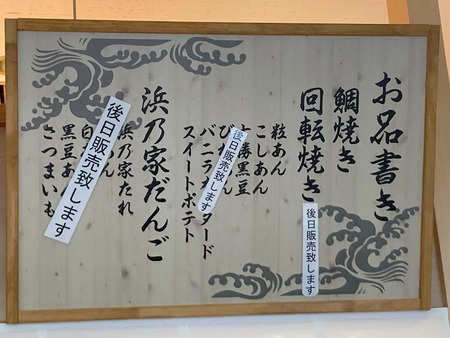 お品書き
鯛焼き
回転焼き
後日販売致します
粒あん
こしあん
勝黒豆
後日販売致します
バニラ
タード
スイートポテト
浜乃家だんご
浜乃家たれ
後日販売致します
黒豆あ
さつまいも